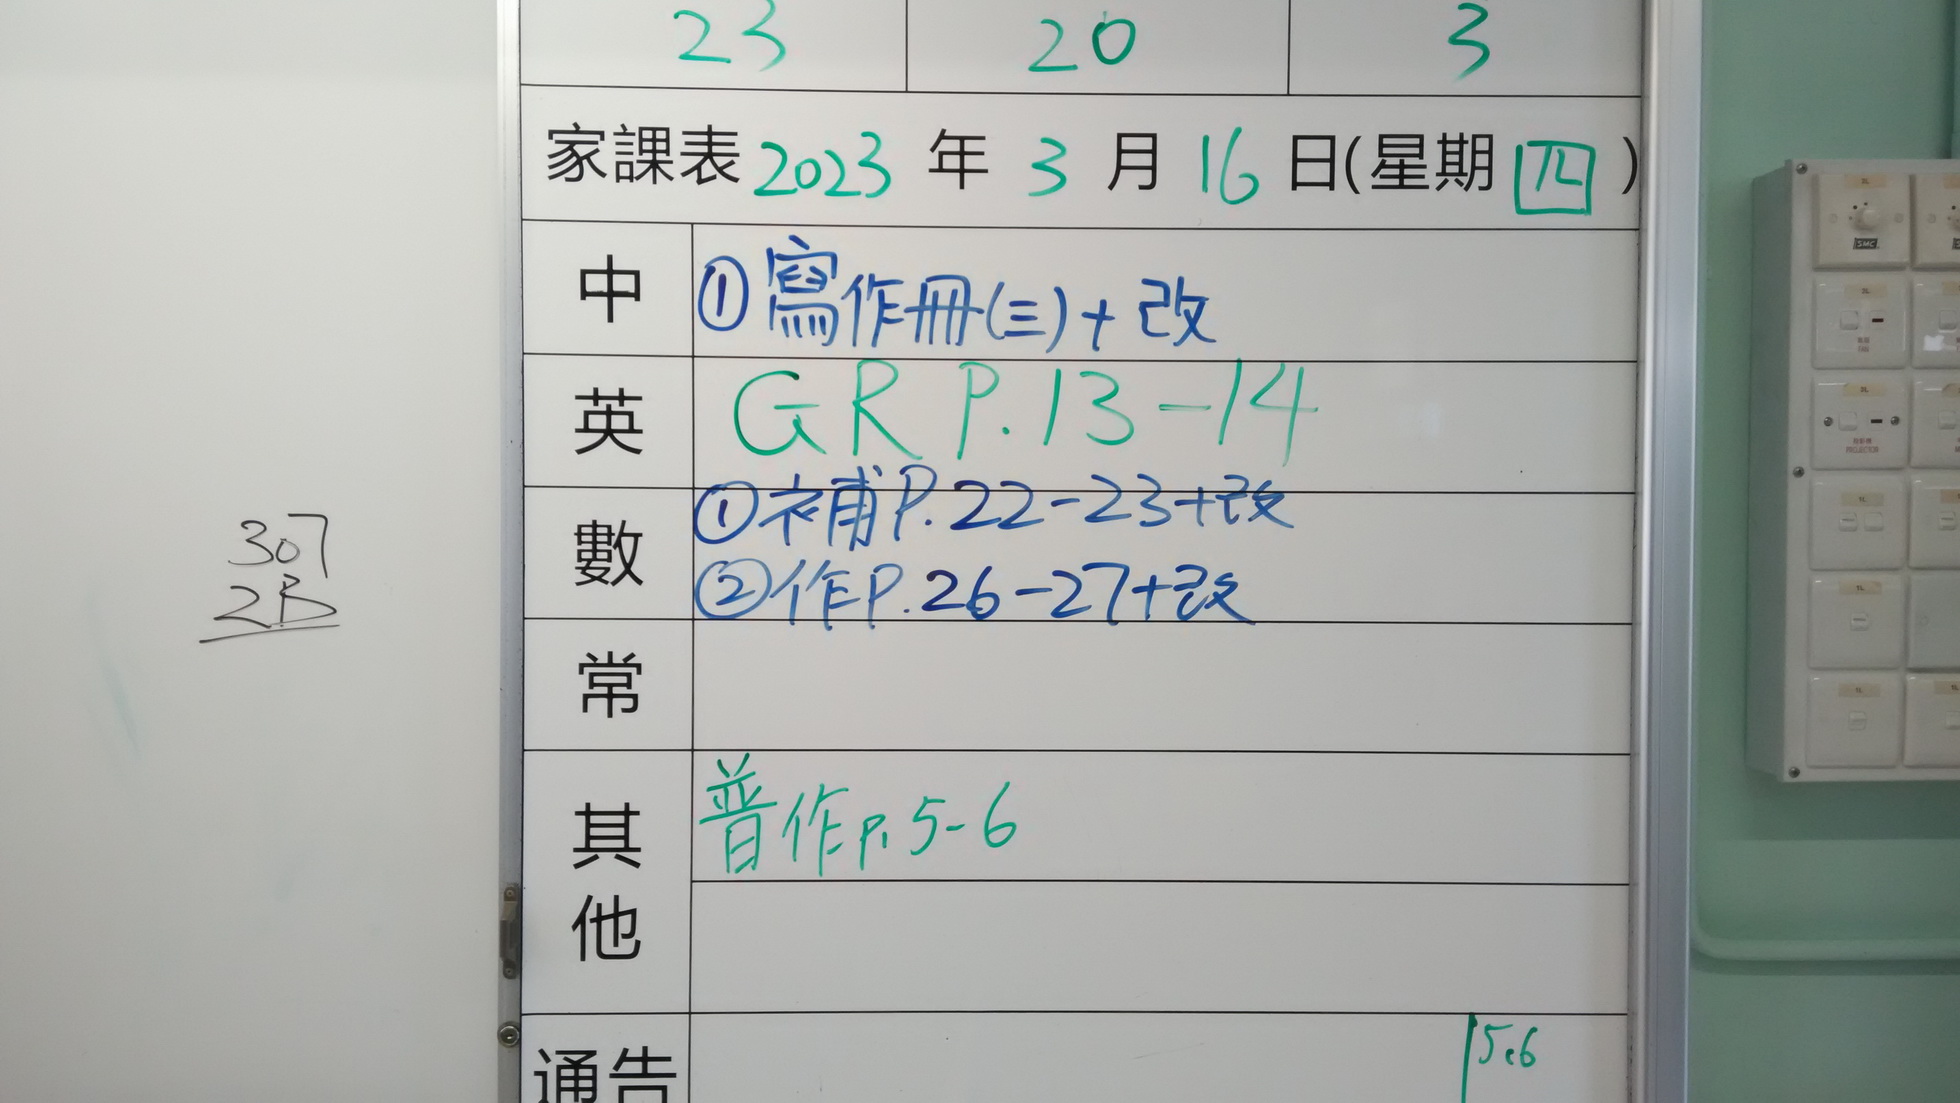 23 20 3
家課表 2023 年 3 月 16 日(星期 四 )
中 ①寫作冊(三)+改
英 GR P.13-14
數 ①補P.22-23+改
②作P.26-27+改
常
其他 普作P.5-6
通告 5.6
307
2B
SMC
PROJECTOR